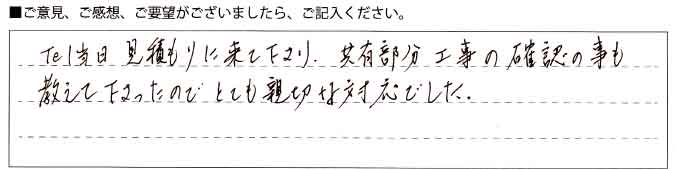 ■ご意見、ご感想、ご要望がございましたら、ご記入ください。
Tel当日 見積もりに来て下さり、共有部分 工事の確認の事も
教えて下さったので とても親切な対応でした。